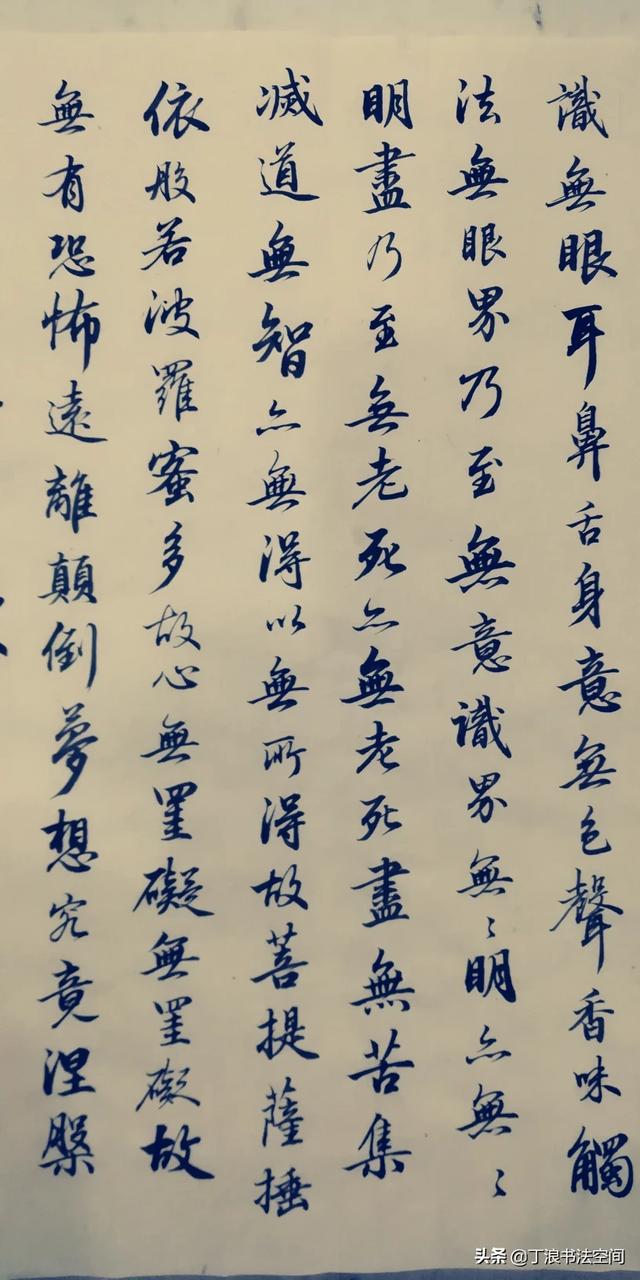 識無眼耳鼻舌身意無色聲香味觸
法無眼界乃至無意識界無〻明亦無〻
明盡乃至無老死亦無老死盡無苦集
滅道無智亦無得以無所得故菩提薩埵
依般若波羅蜜多故心無罣礙無罣礙故
無有恐怖遠離顛倒夢想究竟涅槃
头条 @丁浪书法空间